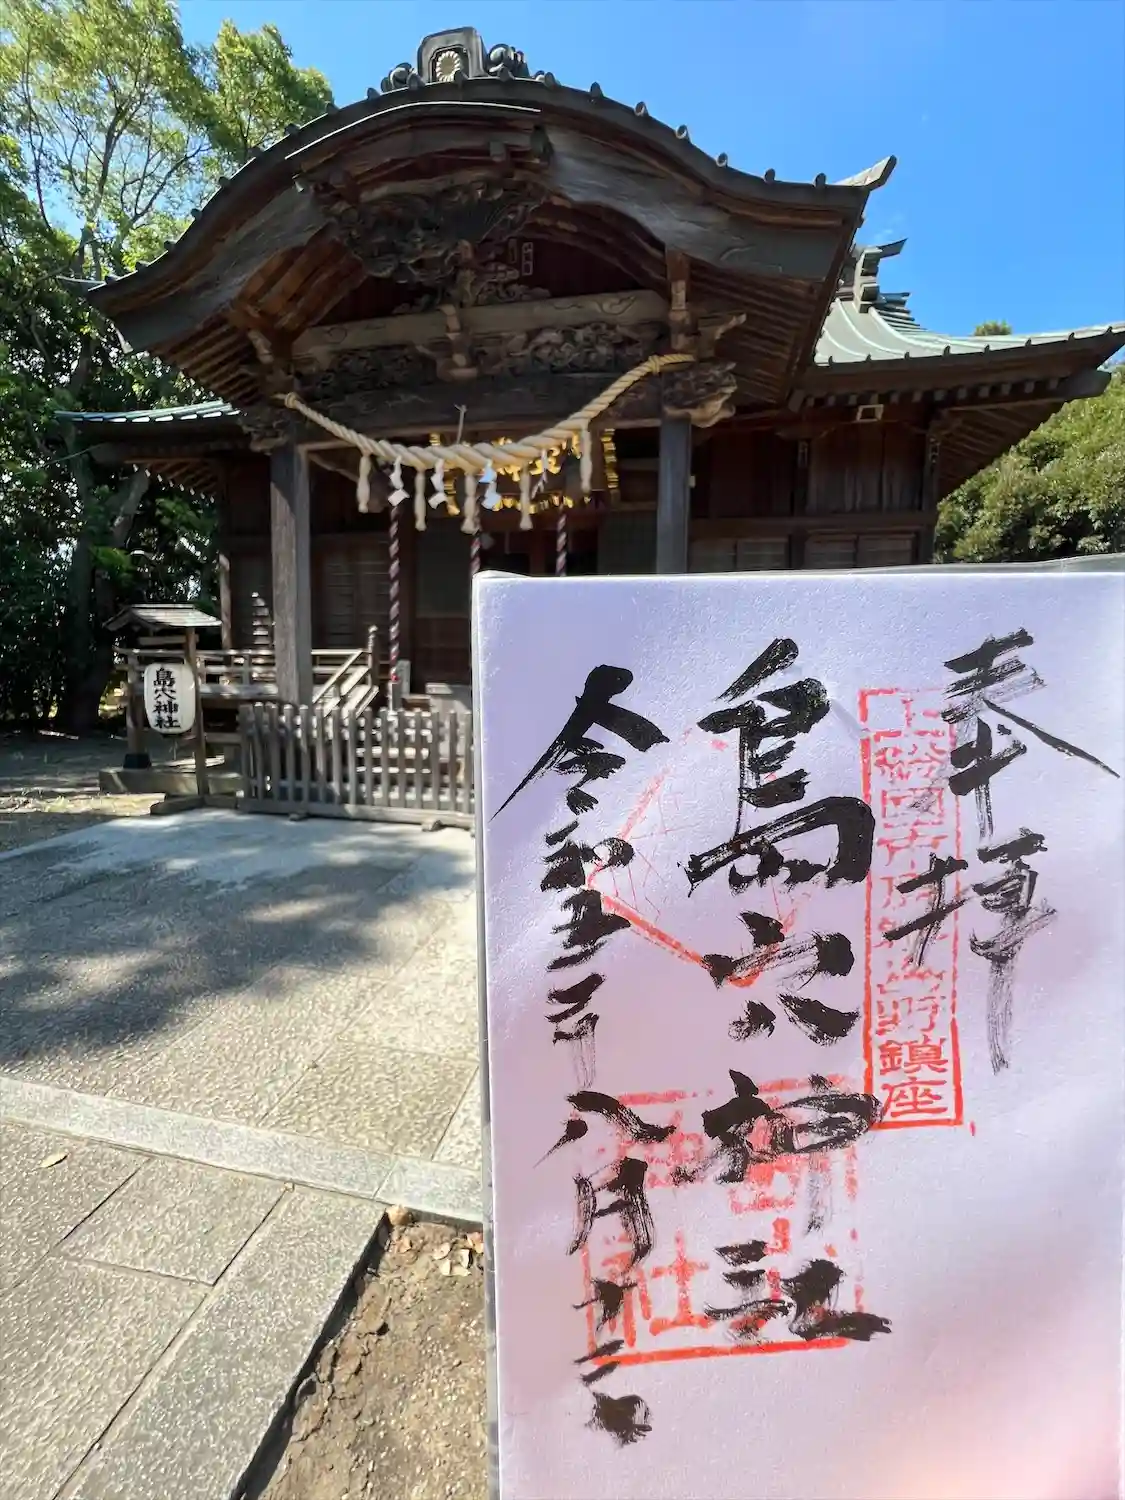 奉拝
上総國市原郡島野鎮座
島穴神社
令和五年
八月十二日
島穴神社